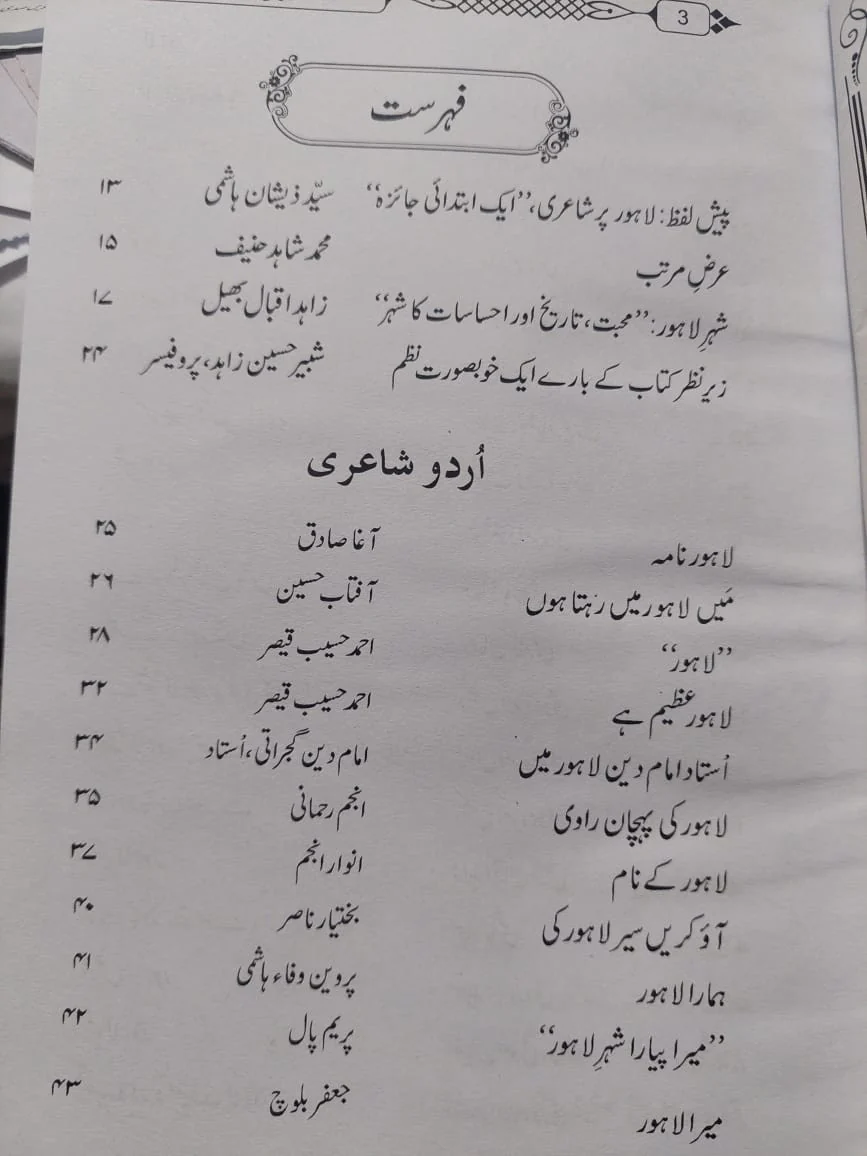 3
فہرست
پیش لفظ: لاہور پر شاعری، ”ایک ابتدائی جائزہ“ سیّد ذیشان ہاشمی ۱۳
عرضِ مرتب محمد شاہد حنیف ۱۵
شہرِ لاہور: ”محبت، تاریخ اور احساسات کا شہر“ زاہد اقبال بھیل ۱۷
زیرِ نظر کتاب کے بارے ایک خوبصورت نظم شبیر حسین زاہد، پروفیسر ۲۴
اُردو شاعری
لاہور نامہ آغا صادق ۲۵
مَیں لاہور میں رہتا ہوں آفتاب حسین ۲۶
”لاہور“ احمد حسیب قیصر ۲۸
لاہور عظیم ہے احمد حسیب قیصر ۳۲
اُستاد امام دین لاہور میں امام دین گجراتی، اُستاد ۳۴
لاہور کی پہچان راوی انجم رحمانی ۳۵
لاہور کے نام انوار انجم ۳۷
آؤ کریں سیر لاہور کی بختیار ناصر ۴۰
ہمارا لاہور پروین وفاء ہاشمی ۴۱
”میرا پیارا شہرِ لاہور“ پریم پال ۴۲
میرا لاہور جعفر بلوچ ۴۳